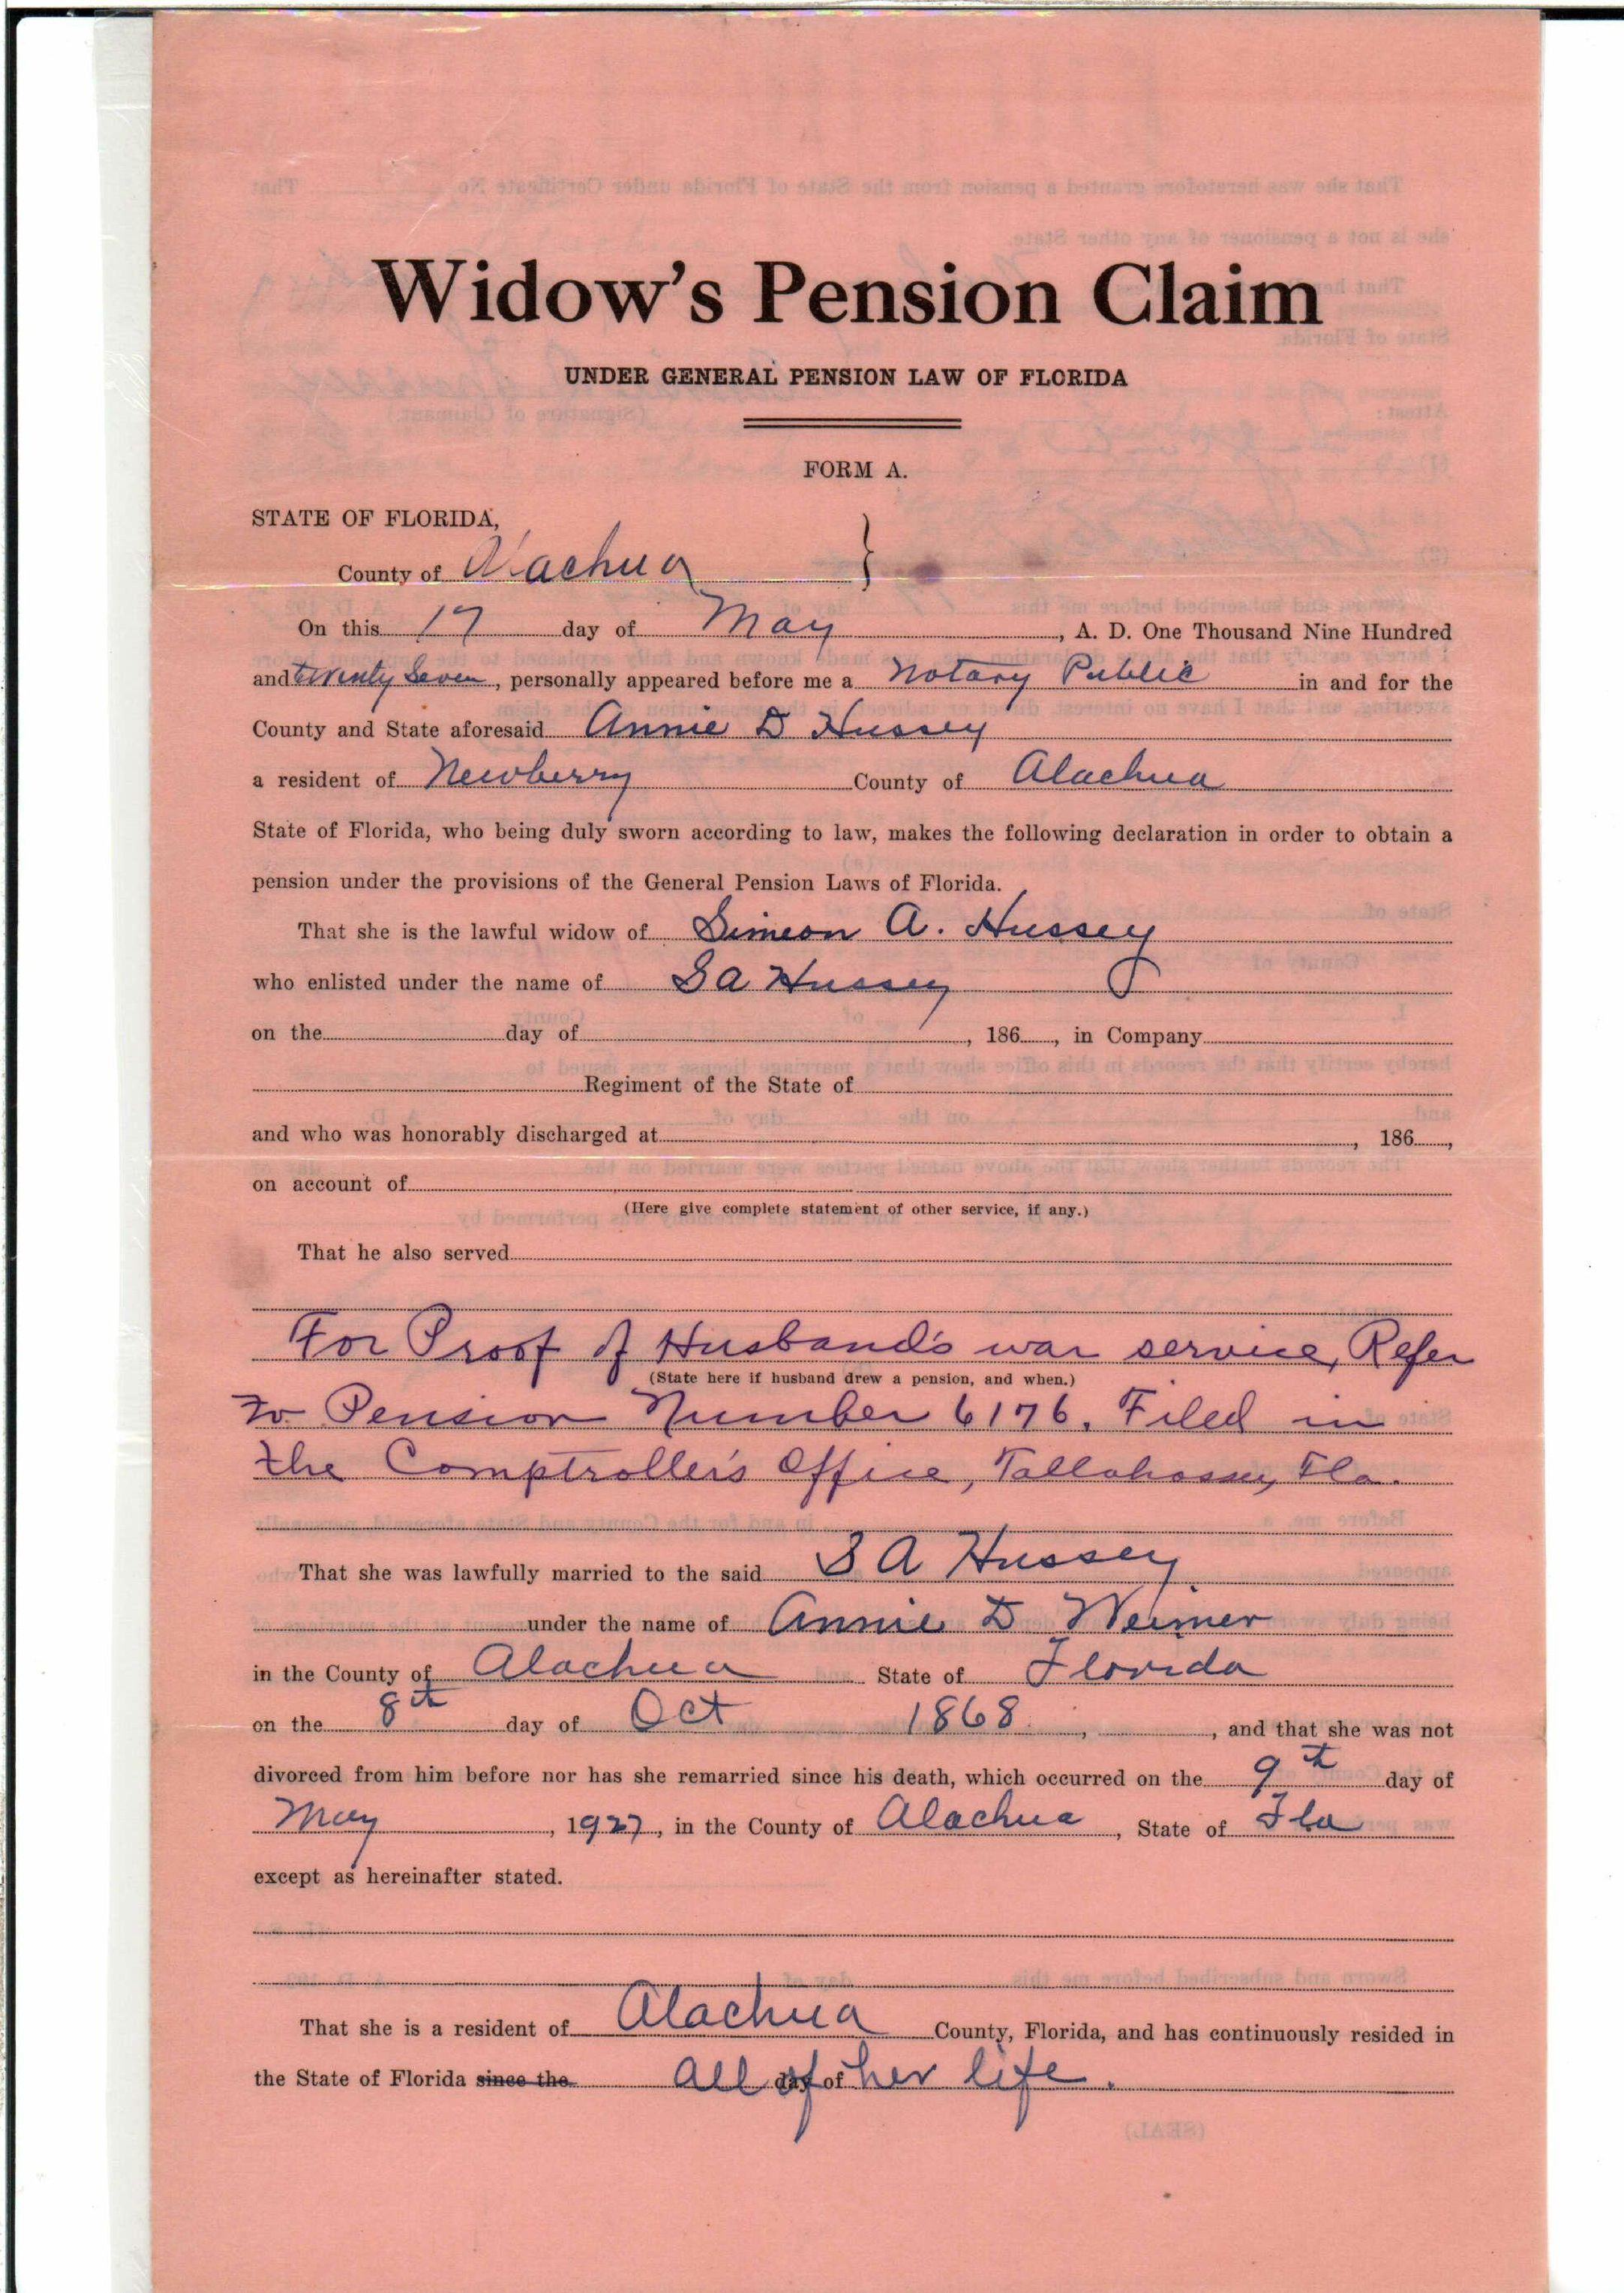 Widow's Pension Claim
UNDER GENERAL PENSION LAW OF FLORIDA
FORM A.
STATE OF FLORIDA,
County of Alachua }
On this 17 day of May, A. D. One Thousand Nine Hundred
and twenty Seven, personally appeared before me a Notary Public in and for the
County and State aforesaid Annie D Hussey
a resident of Newberry County of Alachua
State of Florida, who being duly sworn according to law, makes the following declaration in order to obtain a
pension under the provisions of the General Pension Laws of Florida.
That she is the lawful widow of Simeon A. Hussey
who enlisted under the name of S A Hussey
on the day of , 186 , in Company
Regiment of the State of
and who was honorably discharged at , 186 ,
on account of
(Here give complete statement of other service, if any.)
That he also served
For Proof of Husband's war service, Refer
(State here if husband drew a pension, and when.)
to Pension Number 6176. Filed in
the Comptroller's Office, Tallahassee, Fla.
That she was lawfully married to the said S A Hussey
under the name of Annie D Weimer
in the County of Alachua State of Florida
on the 8th day of Oct 1868 , , and that she was not
divorced from him before nor has she remarried since his death, which occurred on the 9th day of
May , 1927, in the County of Alachua , State of Fla
except as hereinafter stated.
That she is a resident of Alachua County, Florida, and has continuously resided in
the State of Florida since the all of day of her life.